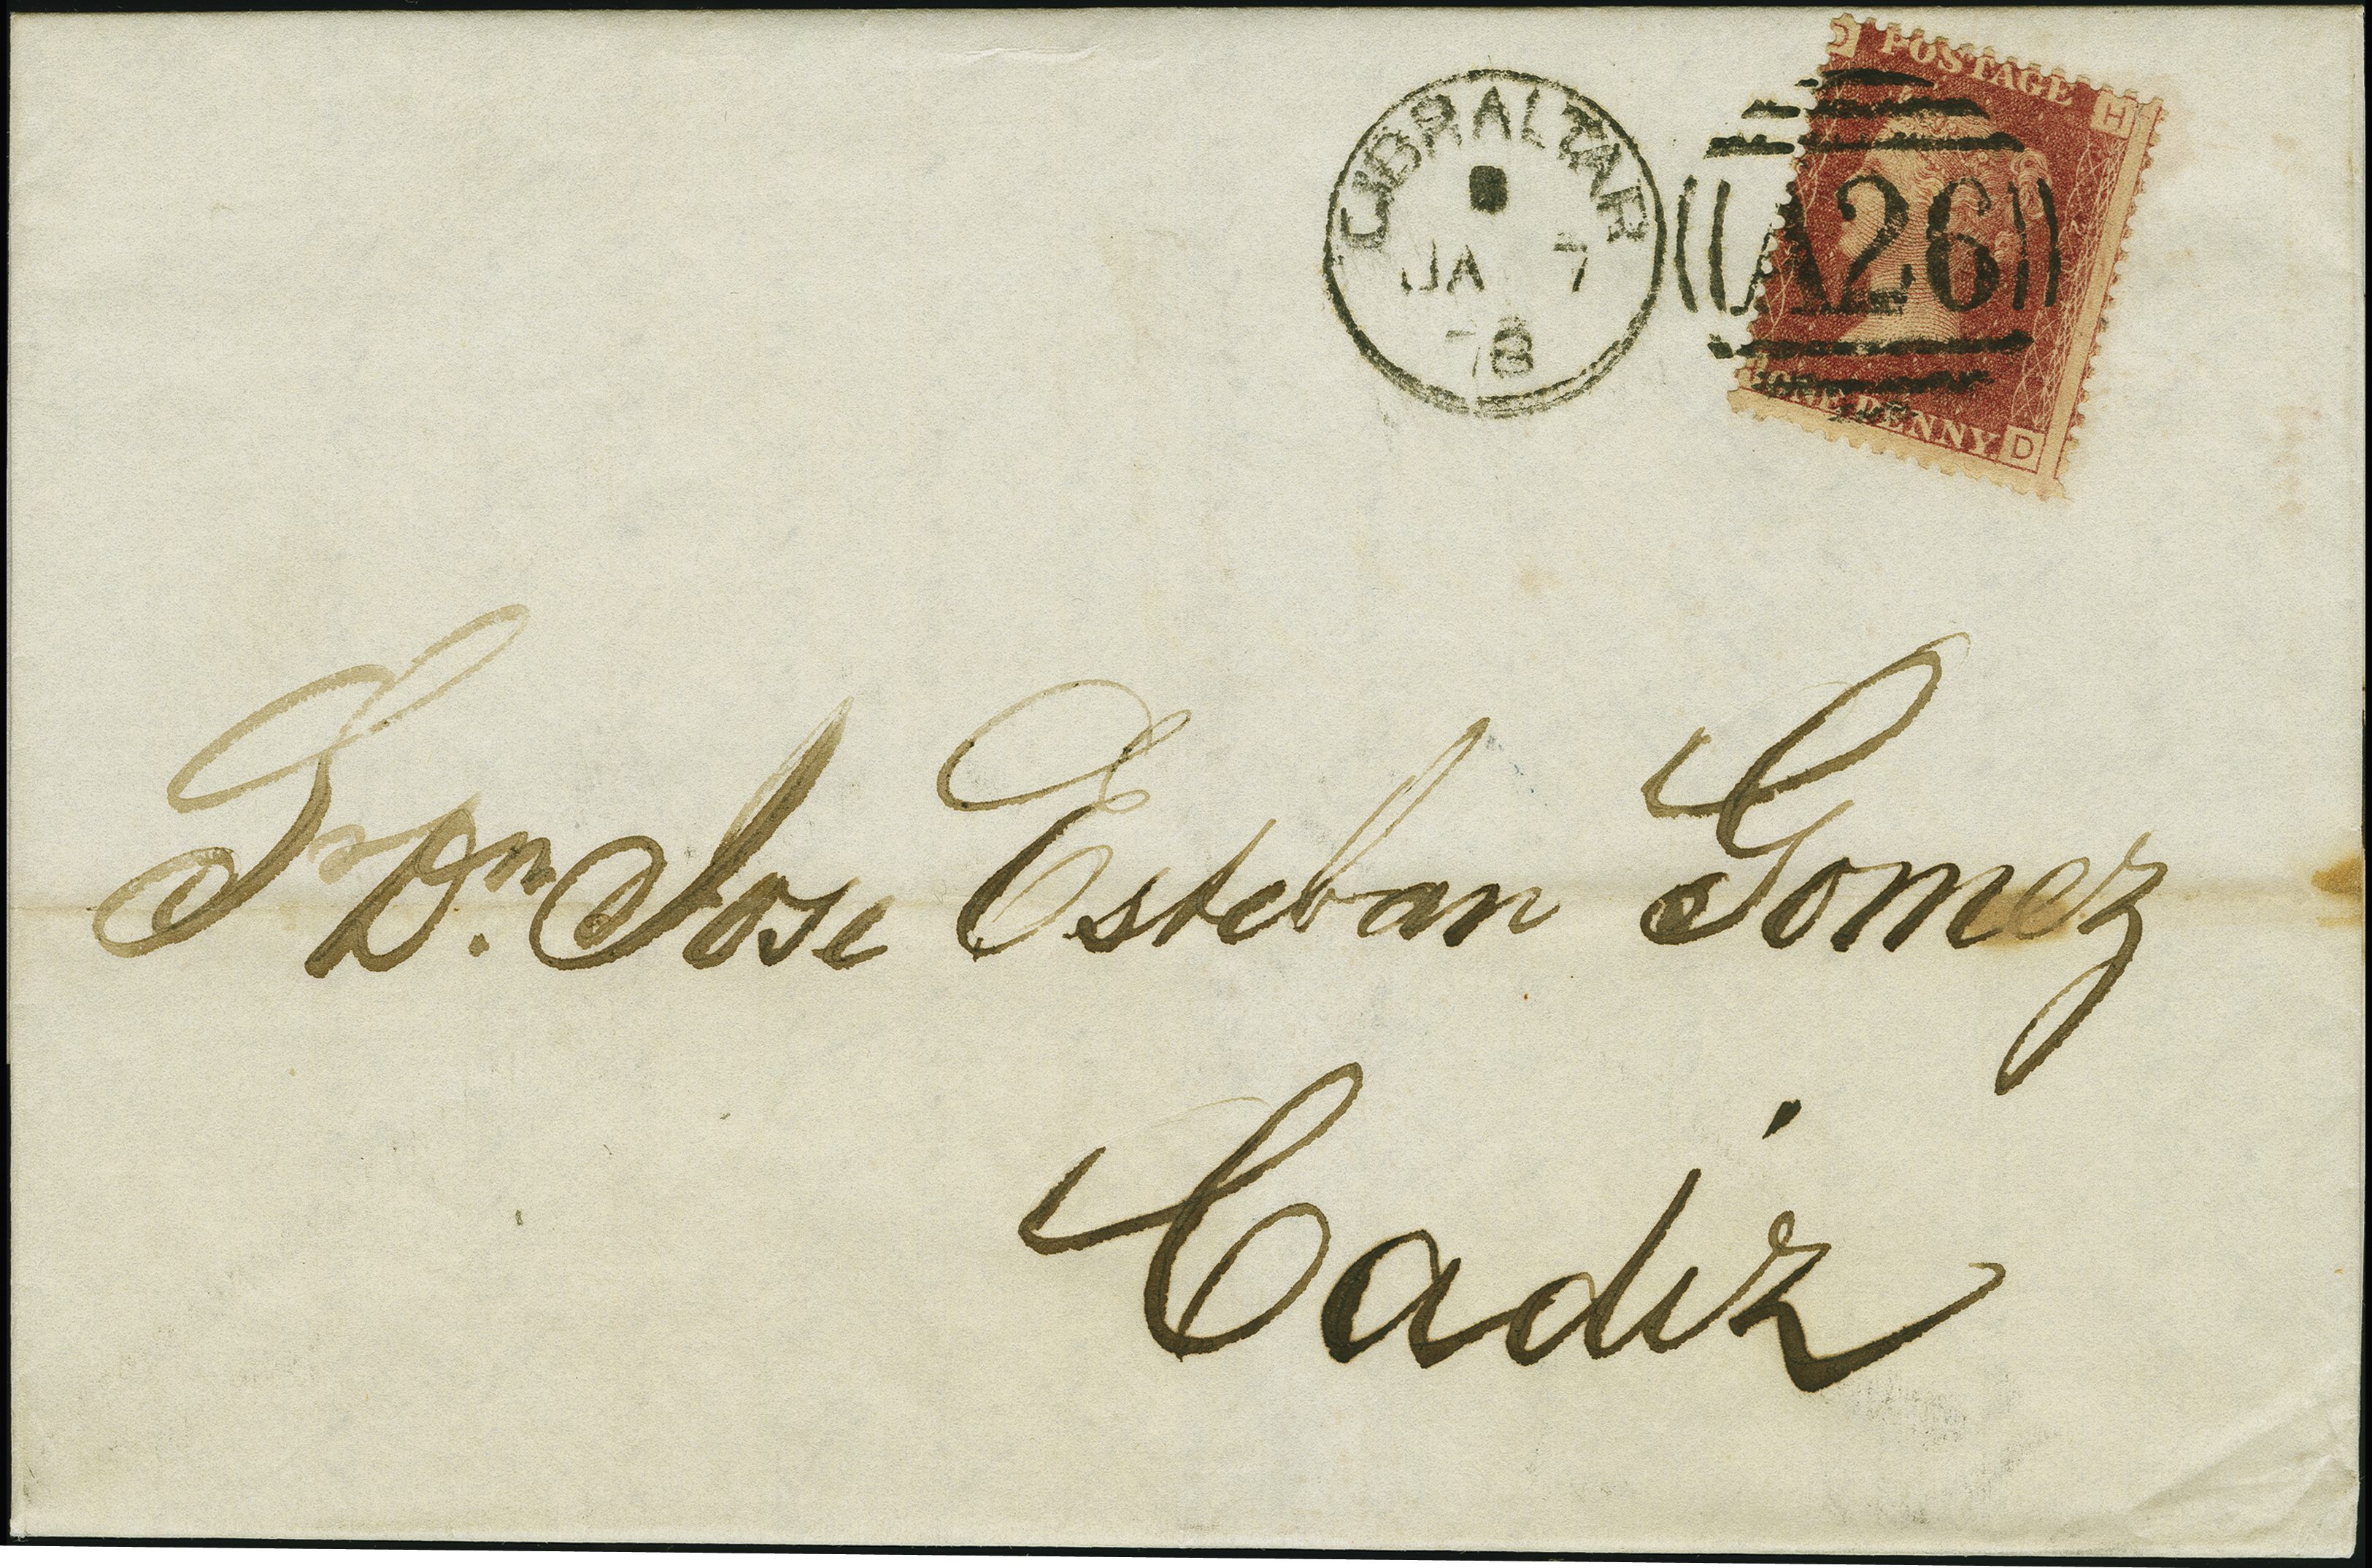 GIBRALTAR
JA 7
78
A26
POSTAGE
H
ONE PENNY
D
Sr Dn. Jose Esteban Gomez
Cadiz